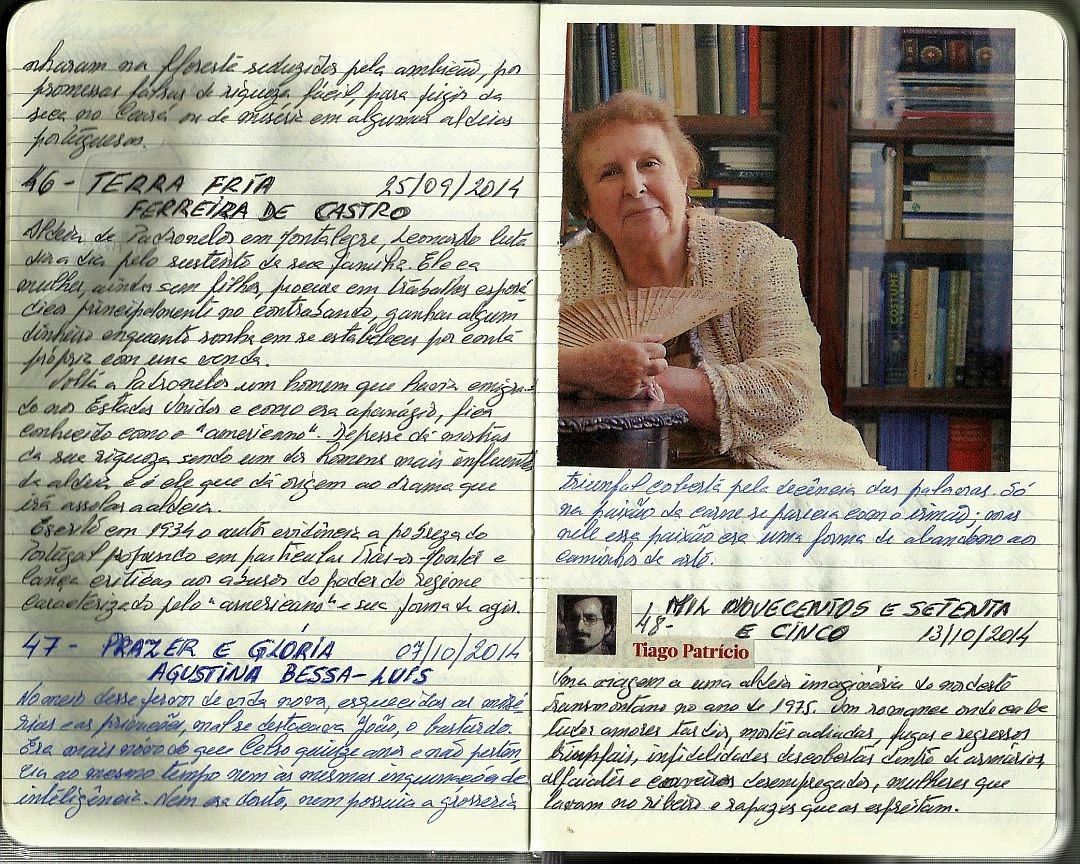 nharam na floresta seduzidos pela ambição, por
promessas falsas de riqueza fácil, para fugir da
seca no Ceará ou de miséria em algumas aldeias
portuguesas.
46 - TERRA FRIA 25/09/2014
FERREIRA DE CASTRO
Aldeia de Padronelos em Montalegre, Leonardo luta
dia a dia pelo sustento da sua família. Ele e a
mulher, ainda sem filhos, procura em trabalhos esporá
dicos principalmente no contrabando, ganhar algum
dinheiro enquanto sonha em se estabelecer por conta
própria com uma venda.
Volta a Padronelos um homem que havia emigra-
do nos Estados Unidos e como era apanágio, fica
conhecido como o "americano". Depressa dá mostras
da sua riqueza sendo um dos homens mais influentes
da aldeia, e é ele que dá origem ao drama que
irá assolar a aldeia.
Escrito em 1934 o autor evidência a pobreza do
Portugal profundo em particular Trás-os-Montes e
lança críticas aos abusos do poder do regime
caracterizado pelo "americano" e sua forma de agir.
47 - PRAZER E GLÓRIA 07/10/2014
AGUSTINA BESSA-LUÍS
No meio desse ferom de vida nova, esquecidas as misé
rias e as privações, mal se destacava João, o bastardo.
Era mais novo do que Celso quinze anos e não perten
cia ao mesmo tempo nem às mesmas inquirações de
inteligência. Nem era douto, nem possuia a grosseria
triunfal coberta pela decência das palavras. Só
na paixão da carne se parecia com o irmão; mas
nele essa paixão era uma forma de abandono aos
caminhos da arte.
48- MIL NOVECENTOS E SETENTA
E CINCO 13/10/2014
Tiago Patrício
Uma viagem a uma aldeia imaginária do nordeste
transmontano no ano de 1975. Um romance onde cabe
tudo: amores tardios, mortes adiadas, fugas e regressos
triunfais, infidelidades descobertas dentro de armários,
alfaiates e coveiros desempregados, mulheres que
lavam no ribeiro e rapazes que as espreitam.